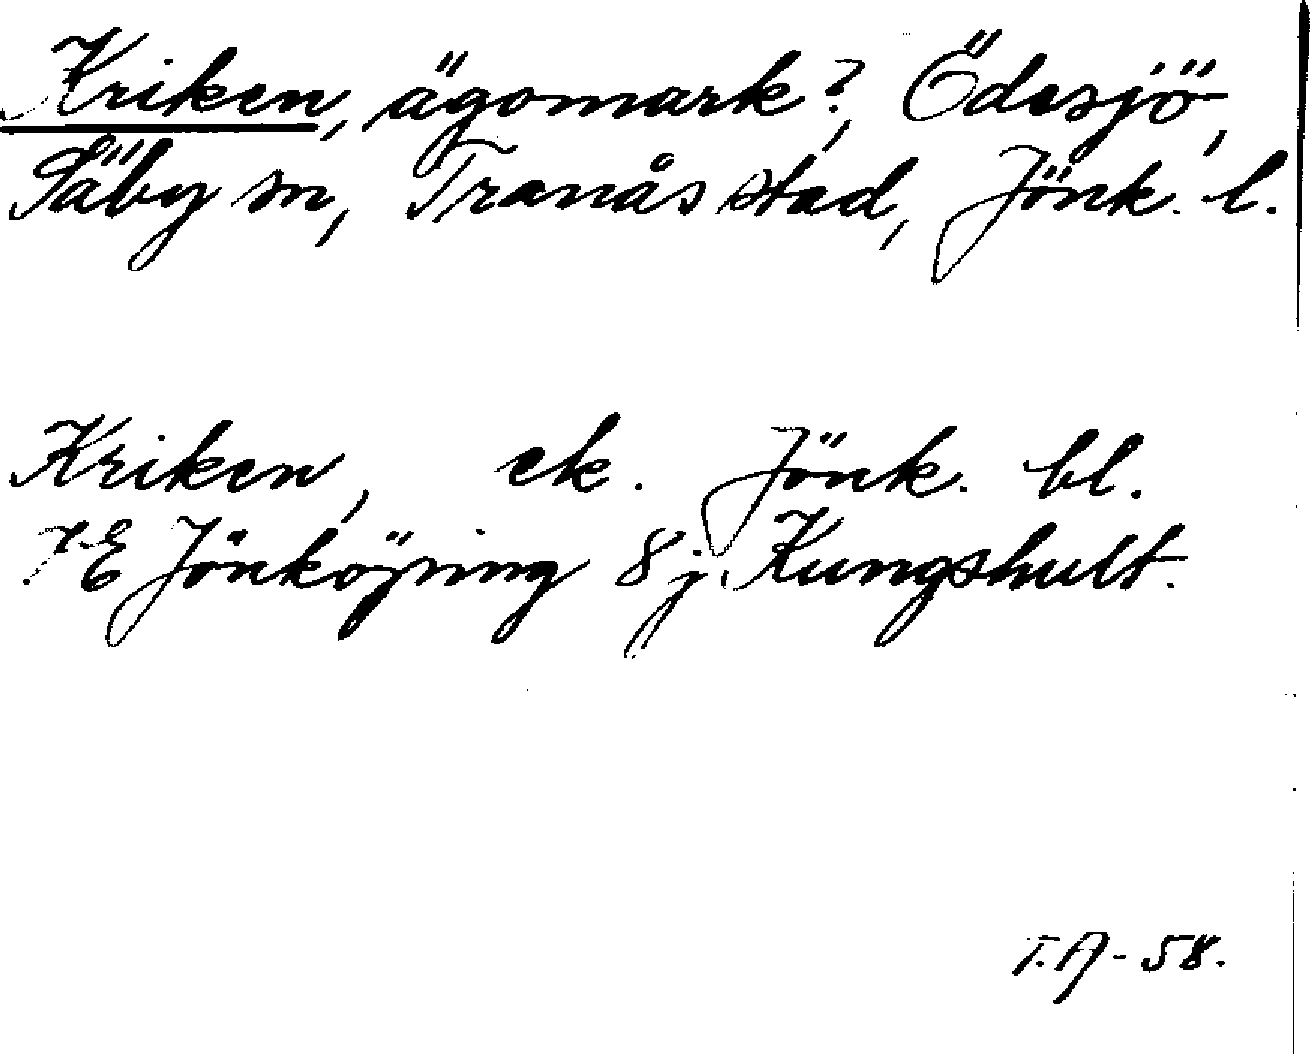 Kriken, ägomark?, Ödesjö,
Säby sn, Tranås stad, Jönk. l.
Kriken, ek. Jönk. bl.
7E Jönköping 8j. Kungshult.
T.A-58.